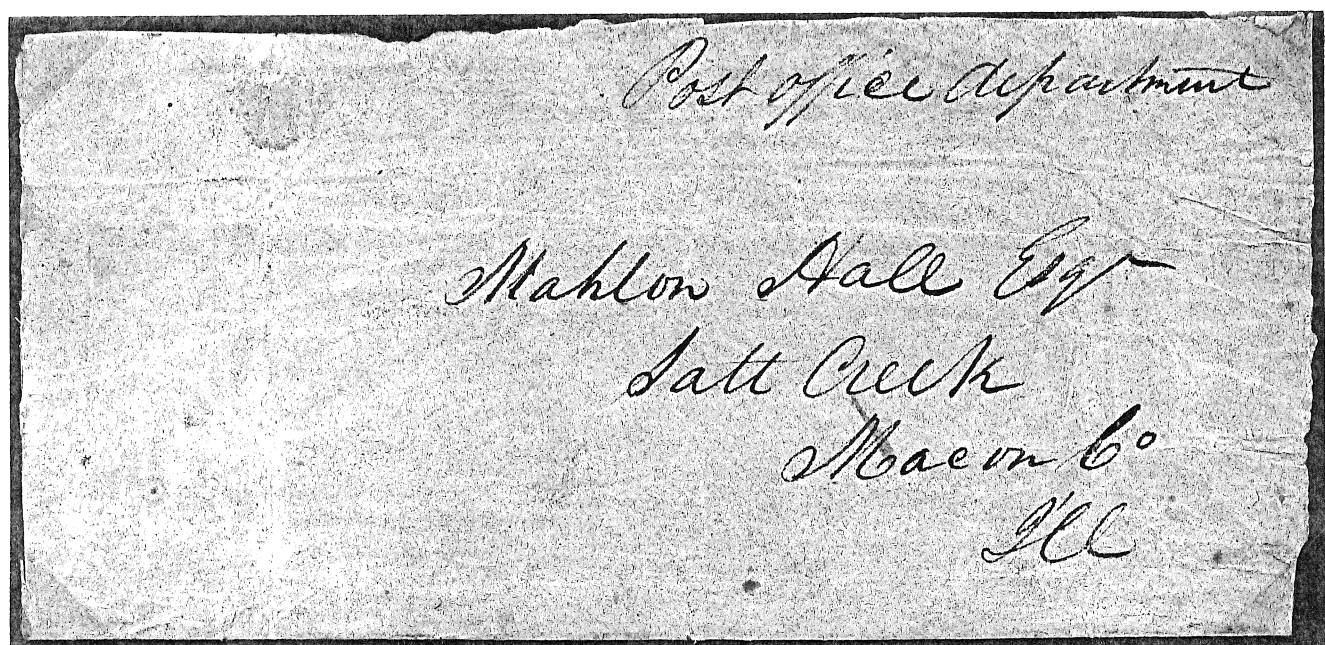 Post office department
Mahlon Hall Esqr
Salt Creek
Macon Co
Ill